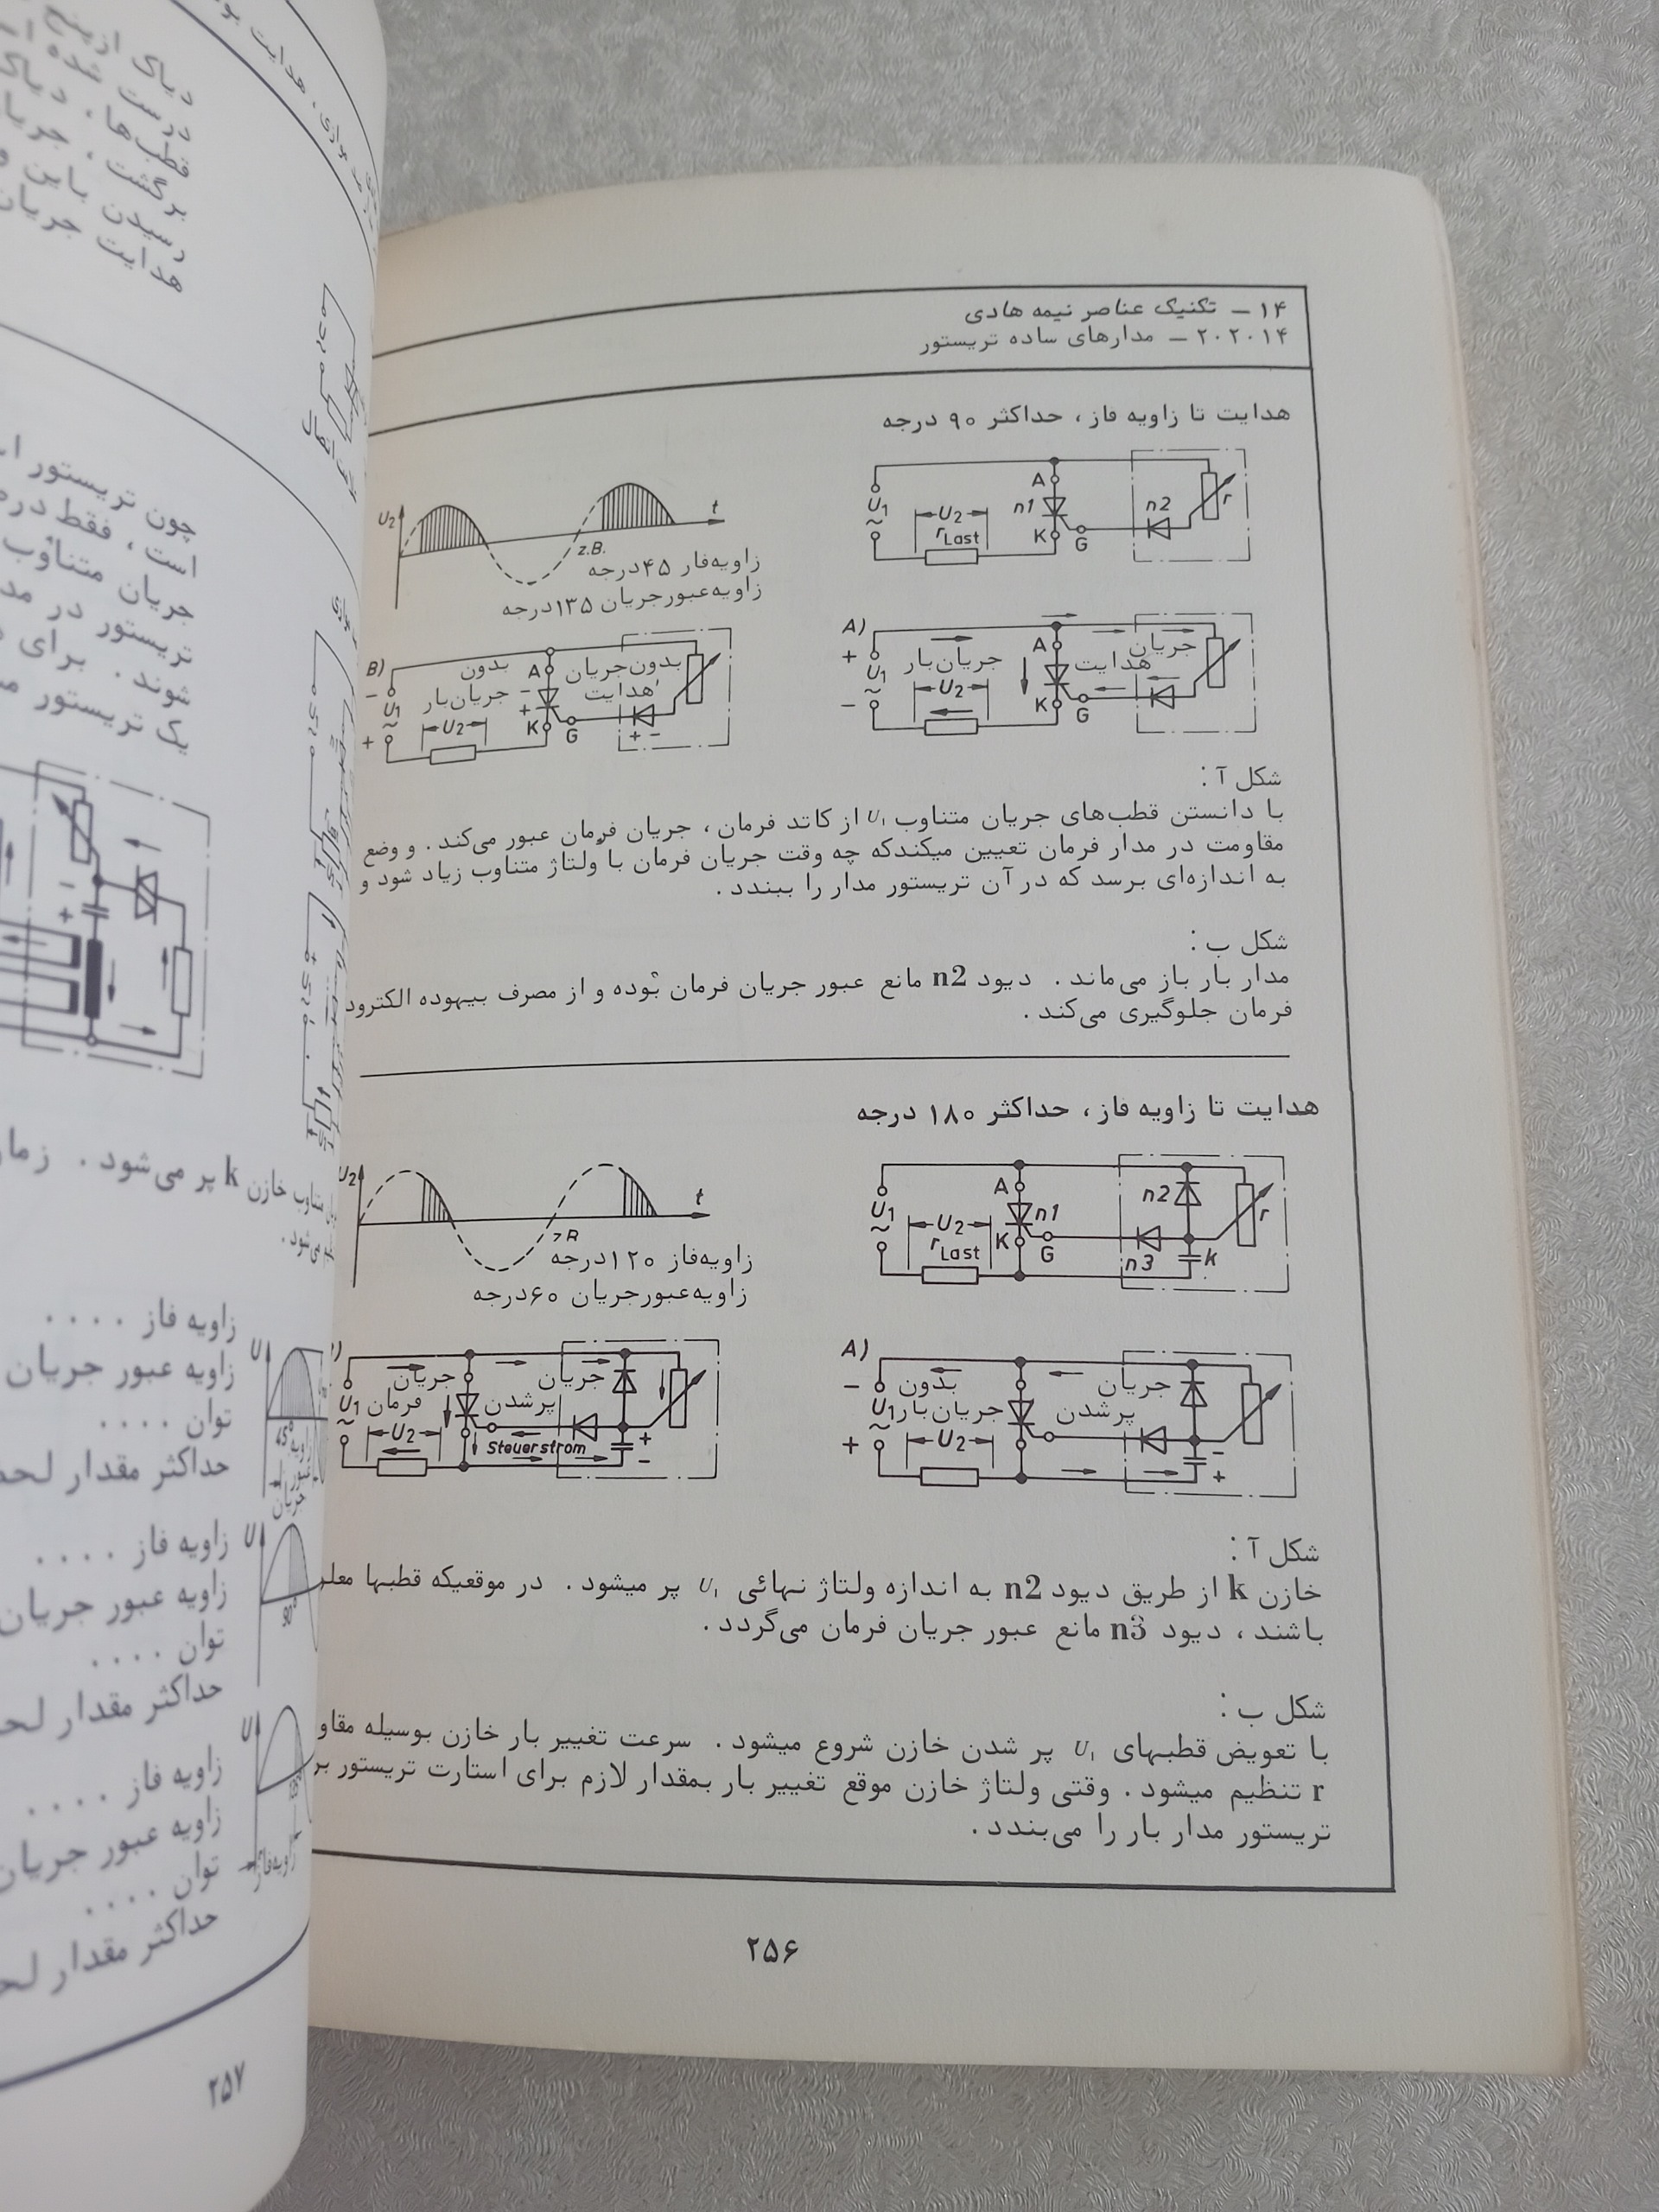 ۱۴ – تکنیک عناصر نیمه هادی
۲۰۲۰۱۴ – مدارهای ساده تریستور
هدایت تا زاویه فاز، حداکثر ۹۰ درجه
U1
~
U2
rLast
A
n1
K
G
n2
r
U2
t
z.B.
زاویه‌فار ۴۵درجه
زاویه‌عبورجریان ۱۳۵درجه
A)
+
U1
~
–
جریان‌بار
U2
A
K
G
جریان
هدایت
B)
–
U1
~
+
بدون
جریان‌بار
U2
A
–
+
K
G
بدون‌جریان
هدایت
+ –
شکل آ :
با دانستن قطب‌های جریان متناوب U۱ از کاتد فرمان، جریان فرمان عبور می‌کند . و وضع
مقاومت در مدار فرمان تعیین میکندکه چه وقت جریان فرمان با ولتاژ متناوب زیاد شود و
به اندازه‌ای برسد که در آن تریستور مدار را ببندد .
شکل ب :
مدار بار باز می‌ماند . دیود n2 مانع عبور جریان فرمان بوده و از مصرف بیهوده الکترود
فرمان جلوگیری می‌کند .
هدایت تا زاویه فاز، حداکثر ۱۸۰ درجه
U1
~
U2
rLast
A
n1
K
G
n2
n3
k
r
U2
t
زاویه‌فاز ۱۲۰درجه
زاویه‌عبورجریان ۶۰درجه
A)
–
U1
~
+
بدون
جریان‌بار
U2
جریان
پرشدن
–
+
)
U1
~
جریان
فرمان
U2
جریان
پرشدن
Steuerstrom
+
–
شکل آ :
خازن k از طریق دیود n2 به اندازه ولتاژ نهائی U۱ پر میشود . در موقعیکه قطبها
باشند، دیود n3 مانع عبور جریان فرمان می‌گردد .
شکل ب :
با تعویض قطبهای U۱ پر شدن خازن شروع میشود . سرعت تغییر بار خازن بوسیله مقاو
r تنظیم میشود . وقتی ولتاژ خازن موقع تغییر بار بمقدار لازم برای استارت تریستور بر
تریستور مدار بار را می‌بندد .
۲۵۶
دیای از پنج
درست شده
قطب‌ها، دیای
برگشت، جریا
رسیدن باین و
هدایت جریان
چون تریستور
است، فقط در
جریان متناوب
تریستور در مد
شوند . برای
یک تریستور
–
+
خازن k پر می‌شود . زمان
می‌شود .
زاویه فاز . . . .
زاویه عبور جریان
توان . . . .
حداکثر مقدار لح
U
45°
زاویه فاز . . . .
زاویه عبور جریان
توان . . . .
حداکثر مقدار لح
U
90°
زاویه فاز . . . .
زاویه عبور جریان
توان . . . .
حداکثر مقدار لح
U
زاویه‌فاز
۲۵۷